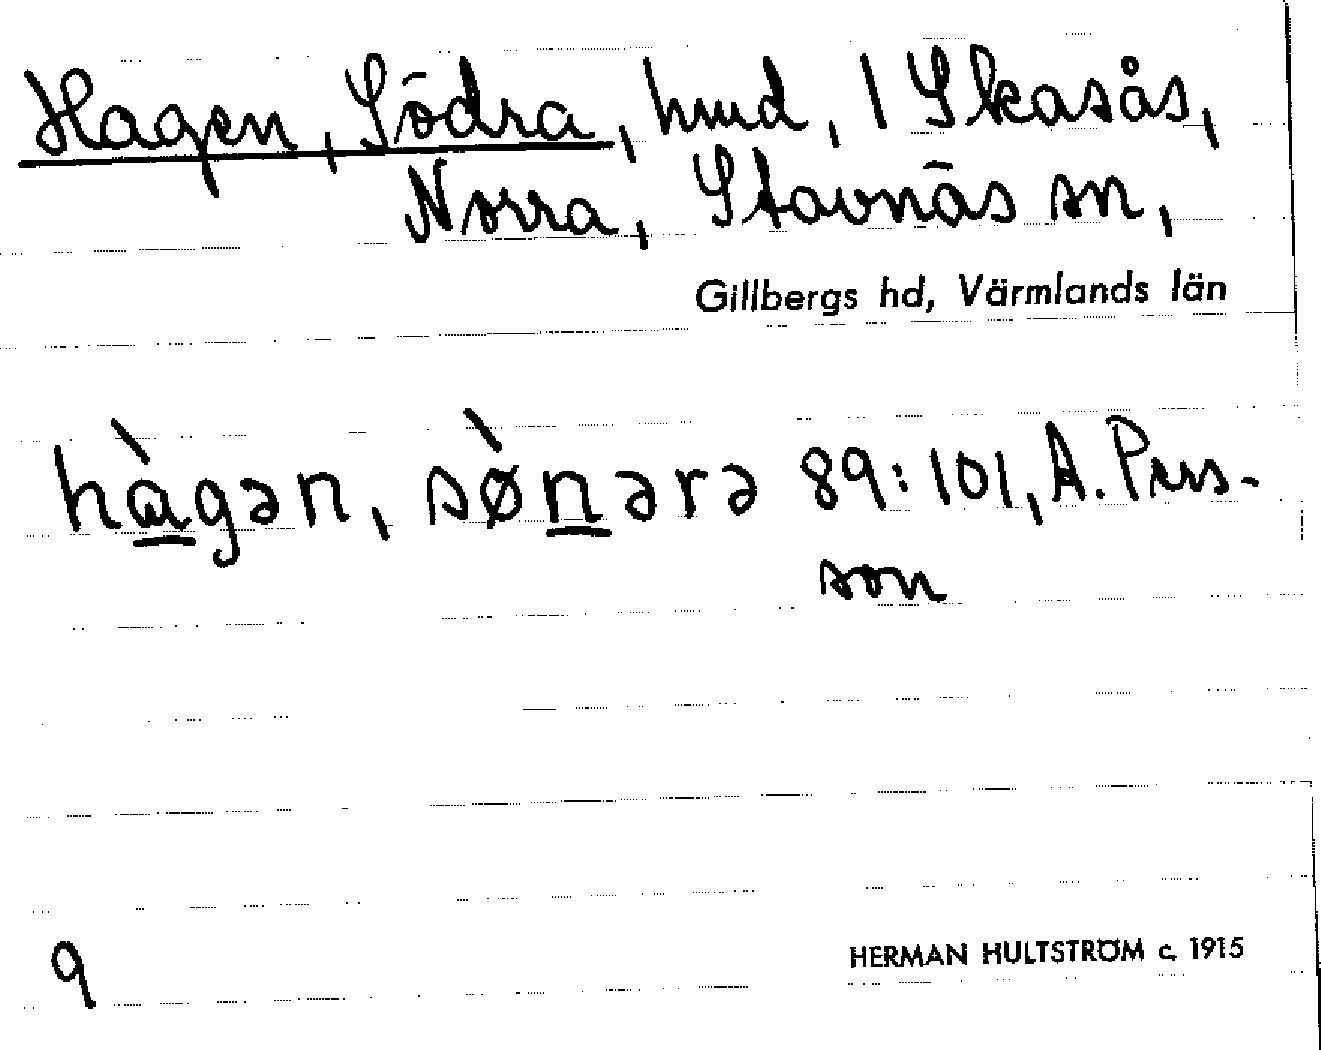 Hagen, Södra, hmd, 1 Skasås,
Norra, Stavnäs sn,
Gillbergs hd, Värmlands län
hàgən, sø̀nərə 89:101, A. Pers-
son
9
HERMAN HULTSTRÖM c. 1915